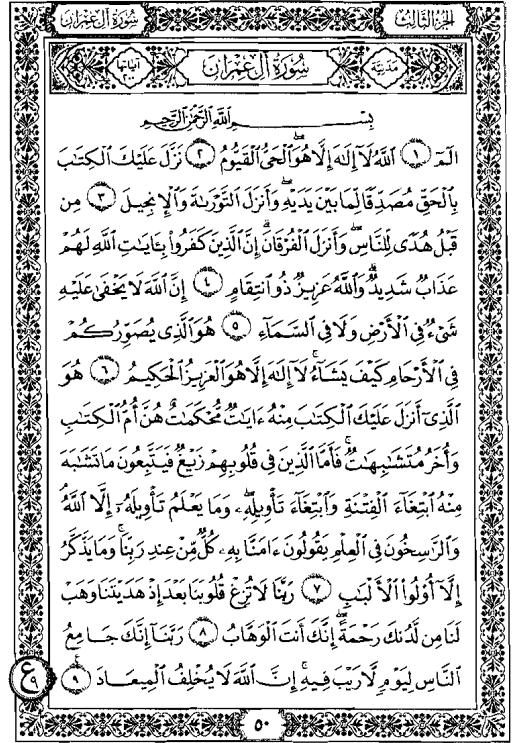 الجزء الثالث
سُورَةُ آلِ عِمْرَانَ
مدنيّة
سُورَةُ آلِ عِمْرَانَ
آياتها ٢٠٠
بِسْمِ اللَّهِ الرَّحْمَٰنِ الرَّحِيمِ
الٓمٓ ١ اللَّهُ لَآ إِلَٰهَ إِلَّا هُوَ الْحَىُّ الْقَيُّومُ ٢ نَزَّلَ عَلَيْكَ الْكِتَٰبَ
بِالْحَقِّ مُصَدِّقًا لِّمَا بَيْنَ يَدَيْهِ وَأَنزَلَ التَّوْرَىٰةَ وَالْإِنجِيلَ ٣ مِن
قَبْلُ هُدًى لِّلنَّاسِ وَأَنزَلَ الْفُرْقَانَ إِنَّ الَّذِينَ كَفَرُوا۟ بِـَٔايَٰتِ اللَّهِ لَهُمْ
عَذَابٌ شَدِيدٌ وَاللَّهُ عَزِيزٌ ذُو انتِقَامٍ ٤ إِنَّ اللَّهَ لَا يَخْفَىٰ عَلَيْهِ
شَىْءٌ فِى الْأَرْضِ وَلَا فِى السَّمَآءِ ٥ هُوَ الَّذِى يُصَوِّرُكُمْ
فِى الْأَرْحَامِ كَيْفَ يَشَآءُ لَآ إِلَٰهَ إِلَّا هُوَ الْعَزِيزُ الْحَكِيمُ ٦ هُوَ
الَّذِىٓ أَنزَلَ عَلَيْكَ الْكِتَٰبَ مِنْهُ ءَايَٰتٌ مُّحْكَمَٰتٌ هُنَّ أُمُّ الْكِتَٰبِ
وَأُخَرُ مُتَشَٰبِهَٰتٌ فَأَمَّا الَّذِينَ فِى قُلُوبِهِمْ زَيْغٌ فَيَتَّبِعُونَ مَا تَشَٰبَهَ
مِنْهُ ابْتِغَآءَ الْفِتْنَةِ وَابْتِغَآءَ تَأْوِيلِهِۦ وَمَا يَعْلَمُ تَأْوِيلَهُۥٓ إِلَّا اللَّهُ
وَالرَّٰسِخُونَ فِى الْعِلْمِ يَقُولُونَ ءَامَنَّا بِهِۦ كُلٌّ مِّنْ عِندِ رَبِّنَا وَمَا يَذَّكَّرُ
إِلَّآ أُو۟لُوا۟ الْأَلْبَٰبِ ٧ رَبَّنَا لَا تُزِغْ قُلُوبَنَا بَعْدَ إِذْ هَدَيْتَنَا وَهَبْ
لَنَا مِن لَّدُنكَ رَحْمَةً إِنَّكَ أَنتَ الْوَهَّابُ ٨ رَبَّنَآ إِنَّكَ جَامِعُ
النَّاسِ لِيَوْمٍ لَّا رَيْبَ فِيهِ إِنَّ اللَّهَ لَا يُخْلِفُ الْمِيعَادَ ٩
ع ٩
٥٠